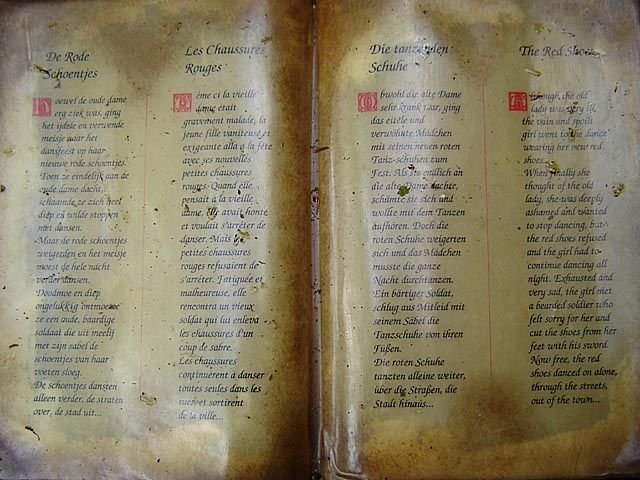 De Rode
Schoentjes
Hoewel de oude dame
erg ziek was, ging
het ijdele en verwende
meisje naar het
dansfeest op haar
nieuwe rode schoentjes.
Toen ze eindelijk aan de
oude dame dacht,
schaamde ze zich heel
diep en wilde stoppen
met dansen.
Maar de rode schoentjes
weigerden en het meisje
moest de hele nacht
verder dansen.
Doodmoe en diep
ongelukkig ontmoette
ze een oude, baardige
soldaat die uit meelij
met zijn sabel de
schoentjes van haar
voeten sloeg.
De schoentjes dansten
alleen verder, de straten
over, de stad uit...
Les Chaussures
Rouges
ême ci la vieille
dame était
gravement malade, la
jeune fille vaniteuse et
exigeante alla a la fête
avec ses nouvelles
petites chaussures
rouges. Quand elle
pensait à la vieille
dame, elle avait honte
et voulait s'arrêter de
danser. Mais les
petites chaussures
rouges refusaient de
s'arrêter. Fatiguée et
malheureuse, elle
rencontra un vieux
soldat qui lui enleva
les chaussures d'un
coup de sabre.
Les chaussures
continuèrent a danser
toutes seules dans les
rues et sortirent
de la ville...
Die tanzenden
Schuhe
Obwohl die alte Dame
sehr krank war, ging
das eitele und
verwöhnte Mädchen
mit seinen neuen roten
Tanz-schuhen zum
Fest. Als sie endlich an
die alte Dame dachte,
schämte sie sich und
wollte mit dem Tanzen
aufhören. Doch die
roten Schuhe weigerten
sich und das Mädchen
musste die ganze
Nacht durchtanzen.
Ein bärtiger Soldat,
schlug aus Mitleid mit
seinem Säbel die
Tanzschuhe von ihren
Füßen.
Die roten Schuhe
tanzten alleine weiter,
über die Straßen, die
Stadt hinaus...
The Red Shoes
Although the old
lady was very ill,
the vain and spoilt
girl went to the dance
wearing her new red
shoes.
When finally she
thought of the old
lady, she was deeply
ashamed and wanted
to stop dancing, but
the red shoes refused
and the girl had to
continue dancing all
night. Exhausted and
very sad, the girl met
a bearded soldier who
felt sorry for her and
cut the shoes from her
feet with his sword.
Now free, the red
shoes danced on alone,
through the streets,
out of the town...